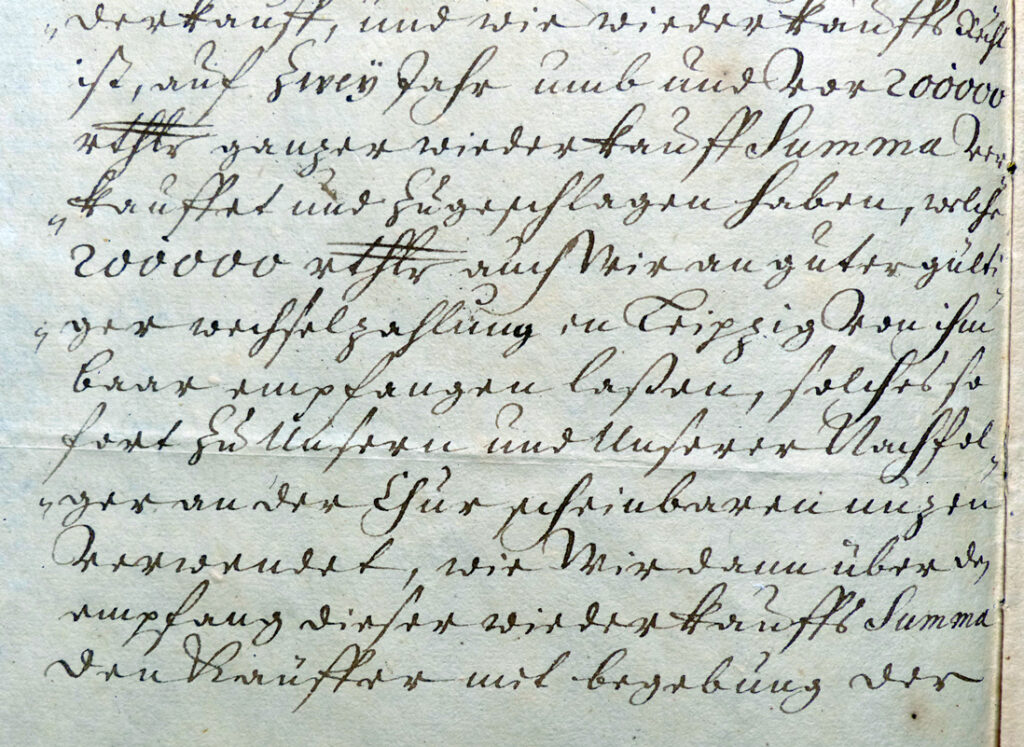 „derkauff, und wie wiederkauffs Recht
ist, auf Zwey Jahr umb und vor 200000
rthlr ganzer wiederkauff Summa ver„
„kauffet und zugeschlagen haben, welche
200000 rthlr auch Wir an guter gülti„
„ger wechselzahlung in Leipzig von ihm
baar empfangen laßen, solches so
fort zu Unsern und Unserer Nachfol„
„ger an der Chur scheinbaren nuzen
verwendet, wie Wir dann über den
empfang dieser wiederkauffs Summa
den Käuffer mit begebung der